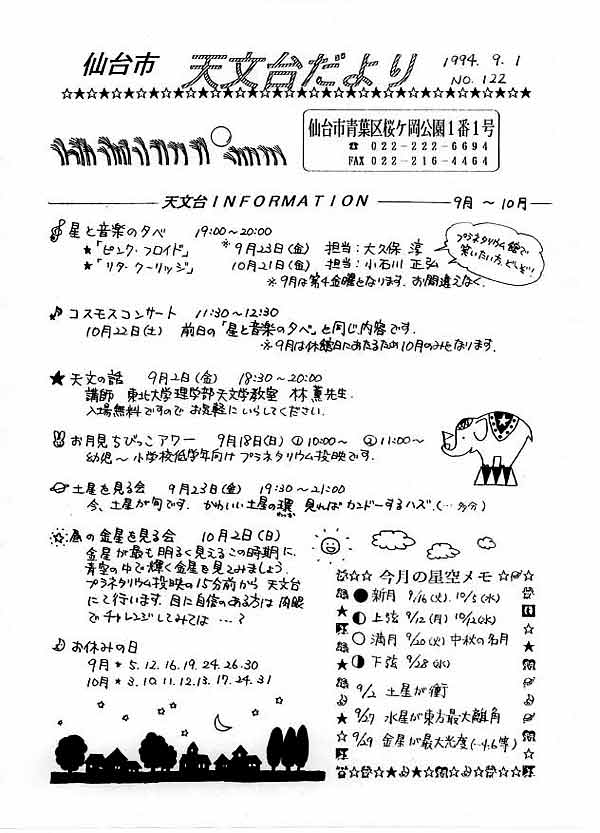 仙台市 天文台だより 1994. 9. 1
NO. 122
仙台市青葉区桜ケ岡公園1番1号
☎ 022-222-6694
FAX 022-216-4464
天文台INFORMATION 9月 ～ 10月
星と音楽の夕べ 19:00～20:00
★「ピンク・フロイド」 ※9月23日(金) 担当：大久保 淳
★「リタ・クーリッジ」 10月21日(金) 担当：小石川 正弘
※9月は第4金曜となります。お間違えなく。
プラネタリウム館で
笑いたい方、どうぞ！
コスモスコンサート 11:30～12:30
10月22日(土) 前日の「星と音楽の夕べ」と同じ内容です。
※9月は休館日にあたるため10月のみとなります。
★ 天文の話 9月2日(金) 18:30～20:00
講師 東北大学理学部天文学教室 林 薫先生.
入場無料ですのでお気軽にいらしてください.
お月見ちびっこアワー 9月18日(日) ①10:00～ ②11:00～
幼児～小学校低学年向けプラネタリウム投映です.
土星を見る会 9月23日(金) 19:30～21:00
今、土星が旬です. かわいい土星の環 見ればカンドーするハズ.(…多分)
昼の金星を見る会 10月2日(日)
金星が最も明るく見えるこの時期に、
青空の中で輝く金星を見てみましょう.
プラネタリウム投映の15分前から 天文台
にて行います. 目に自信のある方は肉眼
でチャレンジしてみては…？
お休みの日
9月 * 5. 12. 16. 19. 24. 26. 30
10月 * 3. 10. 11. 12. 13. 17. 24. 31
今月の星空メモ
新月 9/16(火). 10/5(水)
上弦 9/12(月) 10/12(水)
満月 9/20(火) 中秋の名月
下弦 9/28(水)
9/2 土星が衝
9/27 水星が東方最大離角
9/29 金星が最大光度(-4.6等)